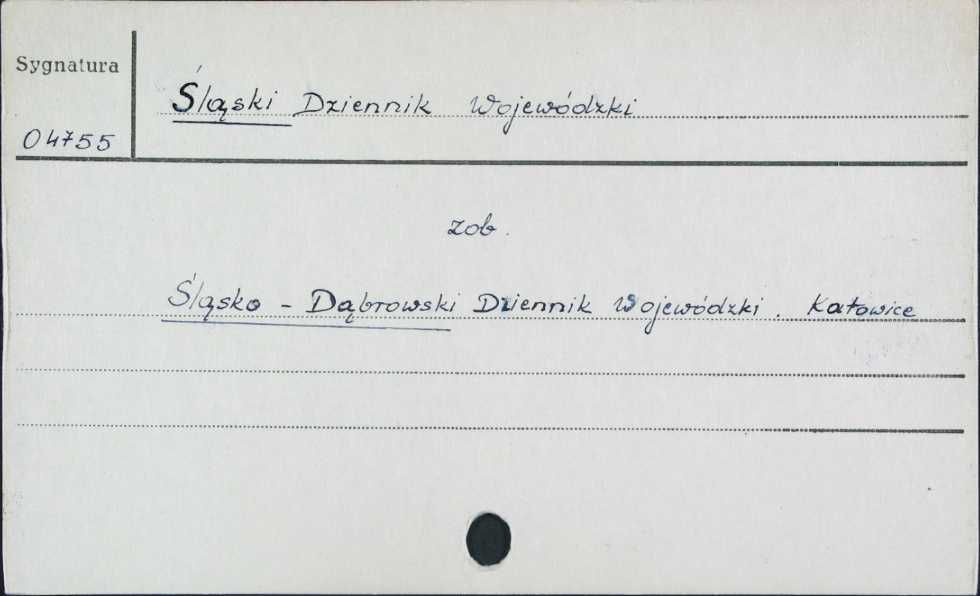 Sygnatura
Śląski Dziennik Wojewódzki
04755
zob.
Śląsko - Dąbrowski Dziennik Wojewódzki. Katowice